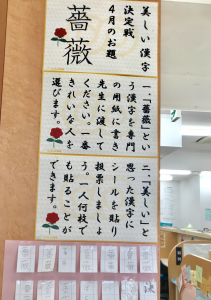 美しい漢字
決定戦
4月のお題
薔薇
一、「薔薇」とい
う漢字を専門
の用紙に書き
先生に渡して
ください。一番
きれいな人を
選びます。
二、「美しい」と
思った漢字に
シールを貼り
投票しましょ
う。一人何枚で
も貼ることが
できます。